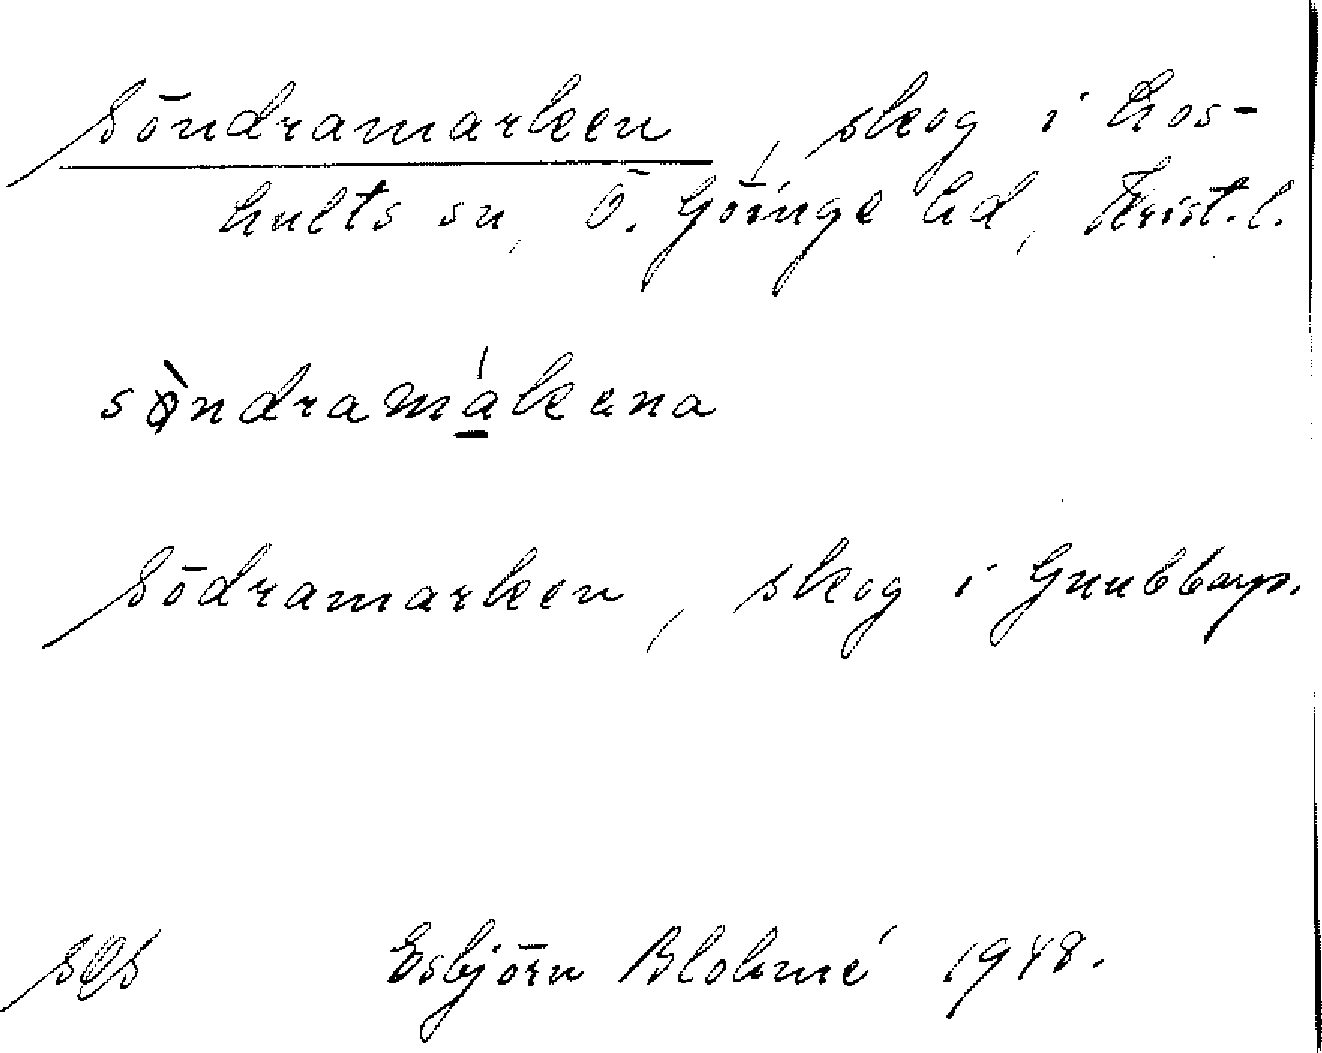 Söndramarken, skog i Loshults sn, Ö. Göinge hd, Krist. l.
sòndramákena
Södramarken, skog i Gnubbarp.
SOS Esbjörn Blohmé 1948.